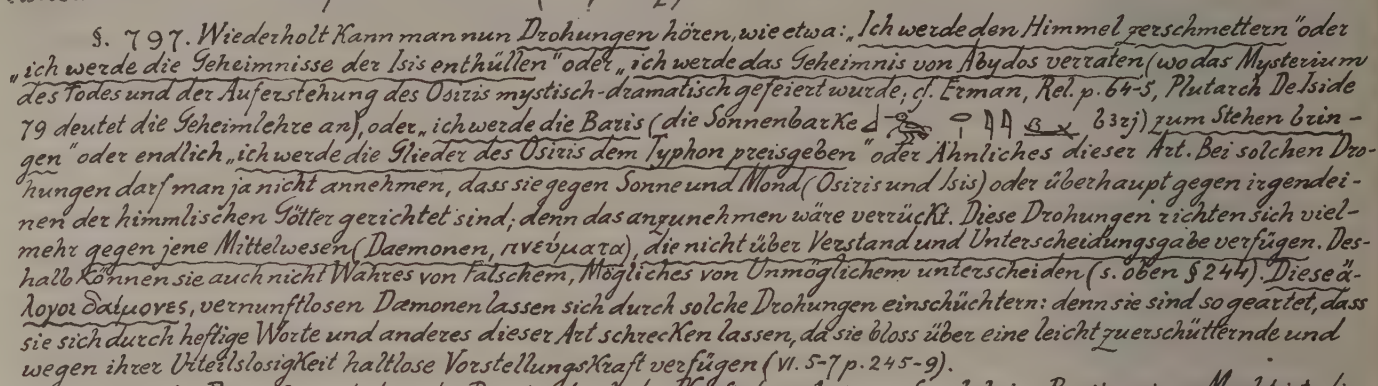 §. 797. Wiederholt kann man nun Drohungen hören, wie etwa: „Ich werde den Himmel zerschmettern" oder
„ich werde die Geheimnisse der Isis enthüllen" oder „ich werde das Geheimnis von Abydos verraten (wo das Mysterium
des Todes und der Auferstehung des Osiris mystisch-dramatisch gefeiert wurde; cf. Erman, Rel. p. 64-5, Plutarch De Iside
79 deutet die Geheimlehre an), oder „ich werde die Baris (die Sonnenbarke b3rj) zum Stehen brin-
gen" oder endlich „ich werde die Glieder des Osiris dem Typhon preisgeben" oder Ähnliches dieser Art. Bei solchen Dro-
hungen darf man ja nicht annehmen, dass sie gegen Sonne und Mond (Osiris und Isis) oder überhaupt gegen irgendei-
nen der himmlischen Götter gerichtet sind; denn das anzunehmen wäre verrückt. Diese Drohungen richten sich viel-
mehr gegen jene Mittelwesen (Daemonen, πνεύματα), die nicht über Verstand und Unterscheidungsgabe verfügen. Des-
halb können sie auch nicht Wahres von Falschem, Mögliches von Unmöglichem unterscheiden (s. oben § 244). Diese ἄ-
λογοι δαίμονες, vernunftlosen Dæmonen lassen sich durch solche Drohungen einschüchtern: denn sie sind so geartet, dass
sie sich durch heftige Worte und anderes dieser Art schrecken lassen, da sie bloss über eine leicht zu erschütternde und
wegen ihrer Urteilslosigkeit haltlose Vorstellungskraft verfügen (VI. 5-7 p. 245-9).